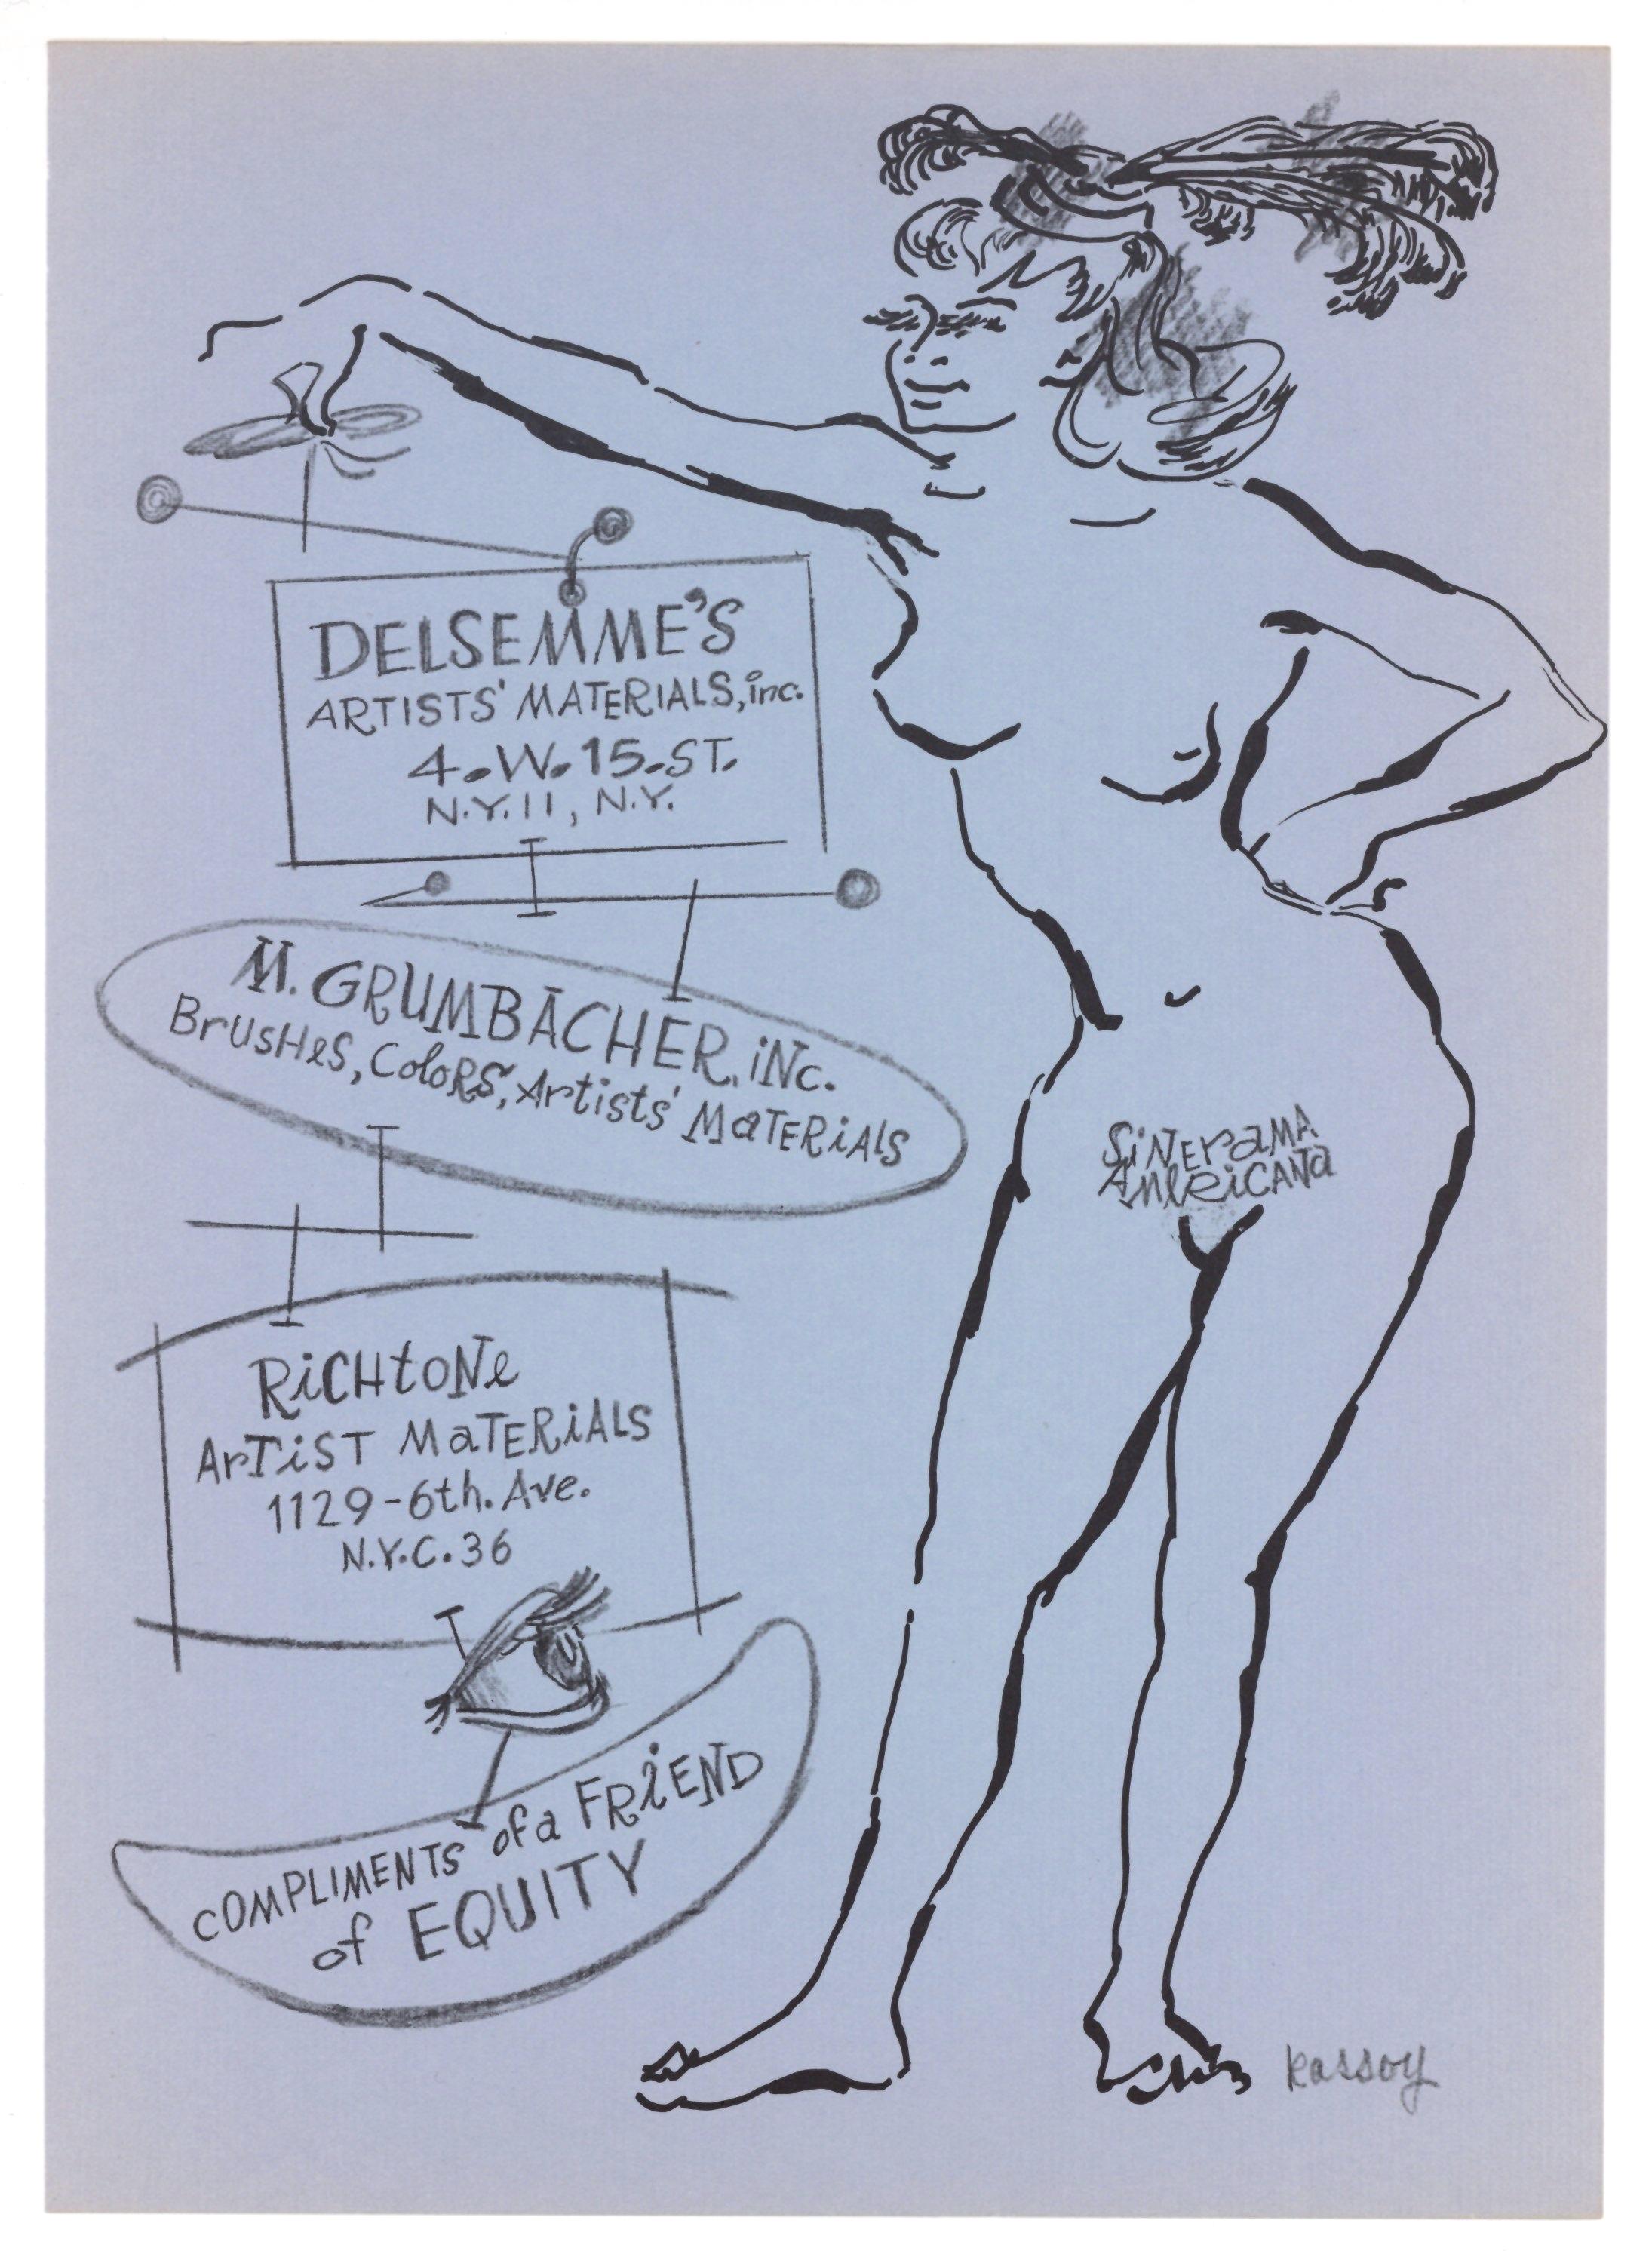 DELSEMME'S
ARTISTS' MATERIALS, inc.
4.W.15.ST.
N.Y.11, N.Y.
M. GRUMBACHER, iNc.
BrusHes, ColoRS, Artists' MaTERiAlS
RiCHtoNe
ArTiST MaTERiALS
1129-6th. Ave.
N.Y.C. 36
COMPLIMENTS of a FRiEND
of EQUITY
SiNEraMA
AMeRiCANa
Kassoy